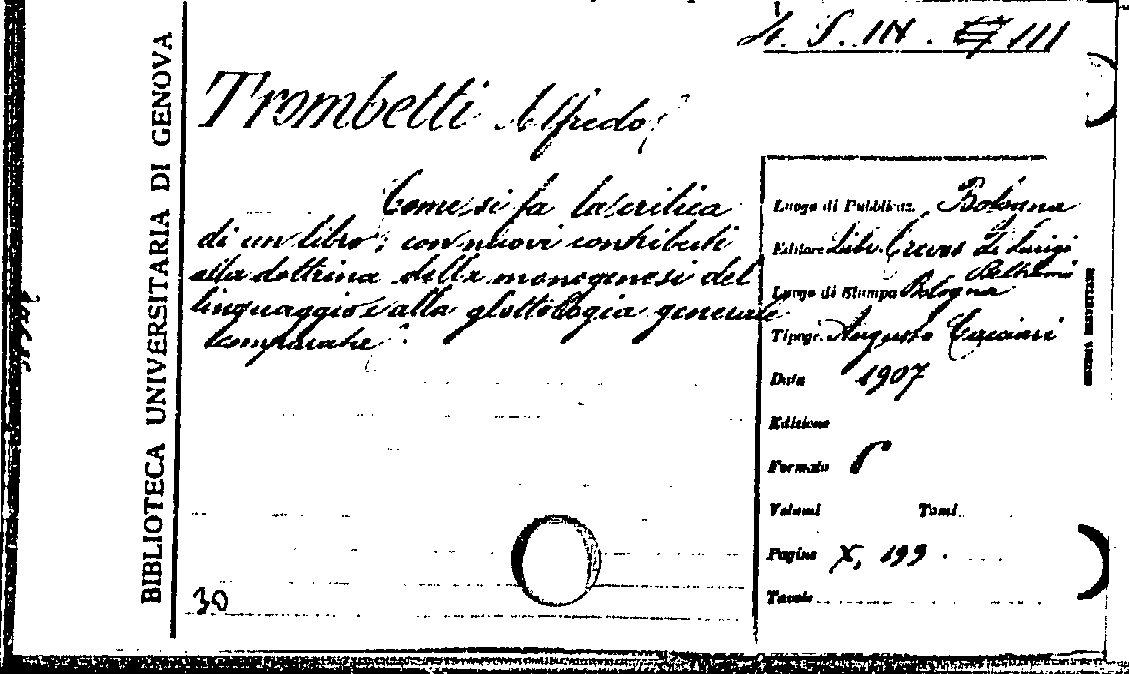 4. S. IN. III
BIBLIOTECA UNIVERSITARIA DI GENOVA
Trombetti Alfredo
Come si fa la critica
di un libro; con nuovi contributi
alla dottrina della monogenesi del
linguaggio e alla glottologia generale
comparata.
30
Luogo di Pubblicaz. Bologna
Editore Libr. Treves di Luigi
Beltrami
Luogo di Stampa Bologna
Tipogr. Augusto
Data 1907
Edizione
Formato 8
Volumi Tomi
Pagine X, 199.
Tavole